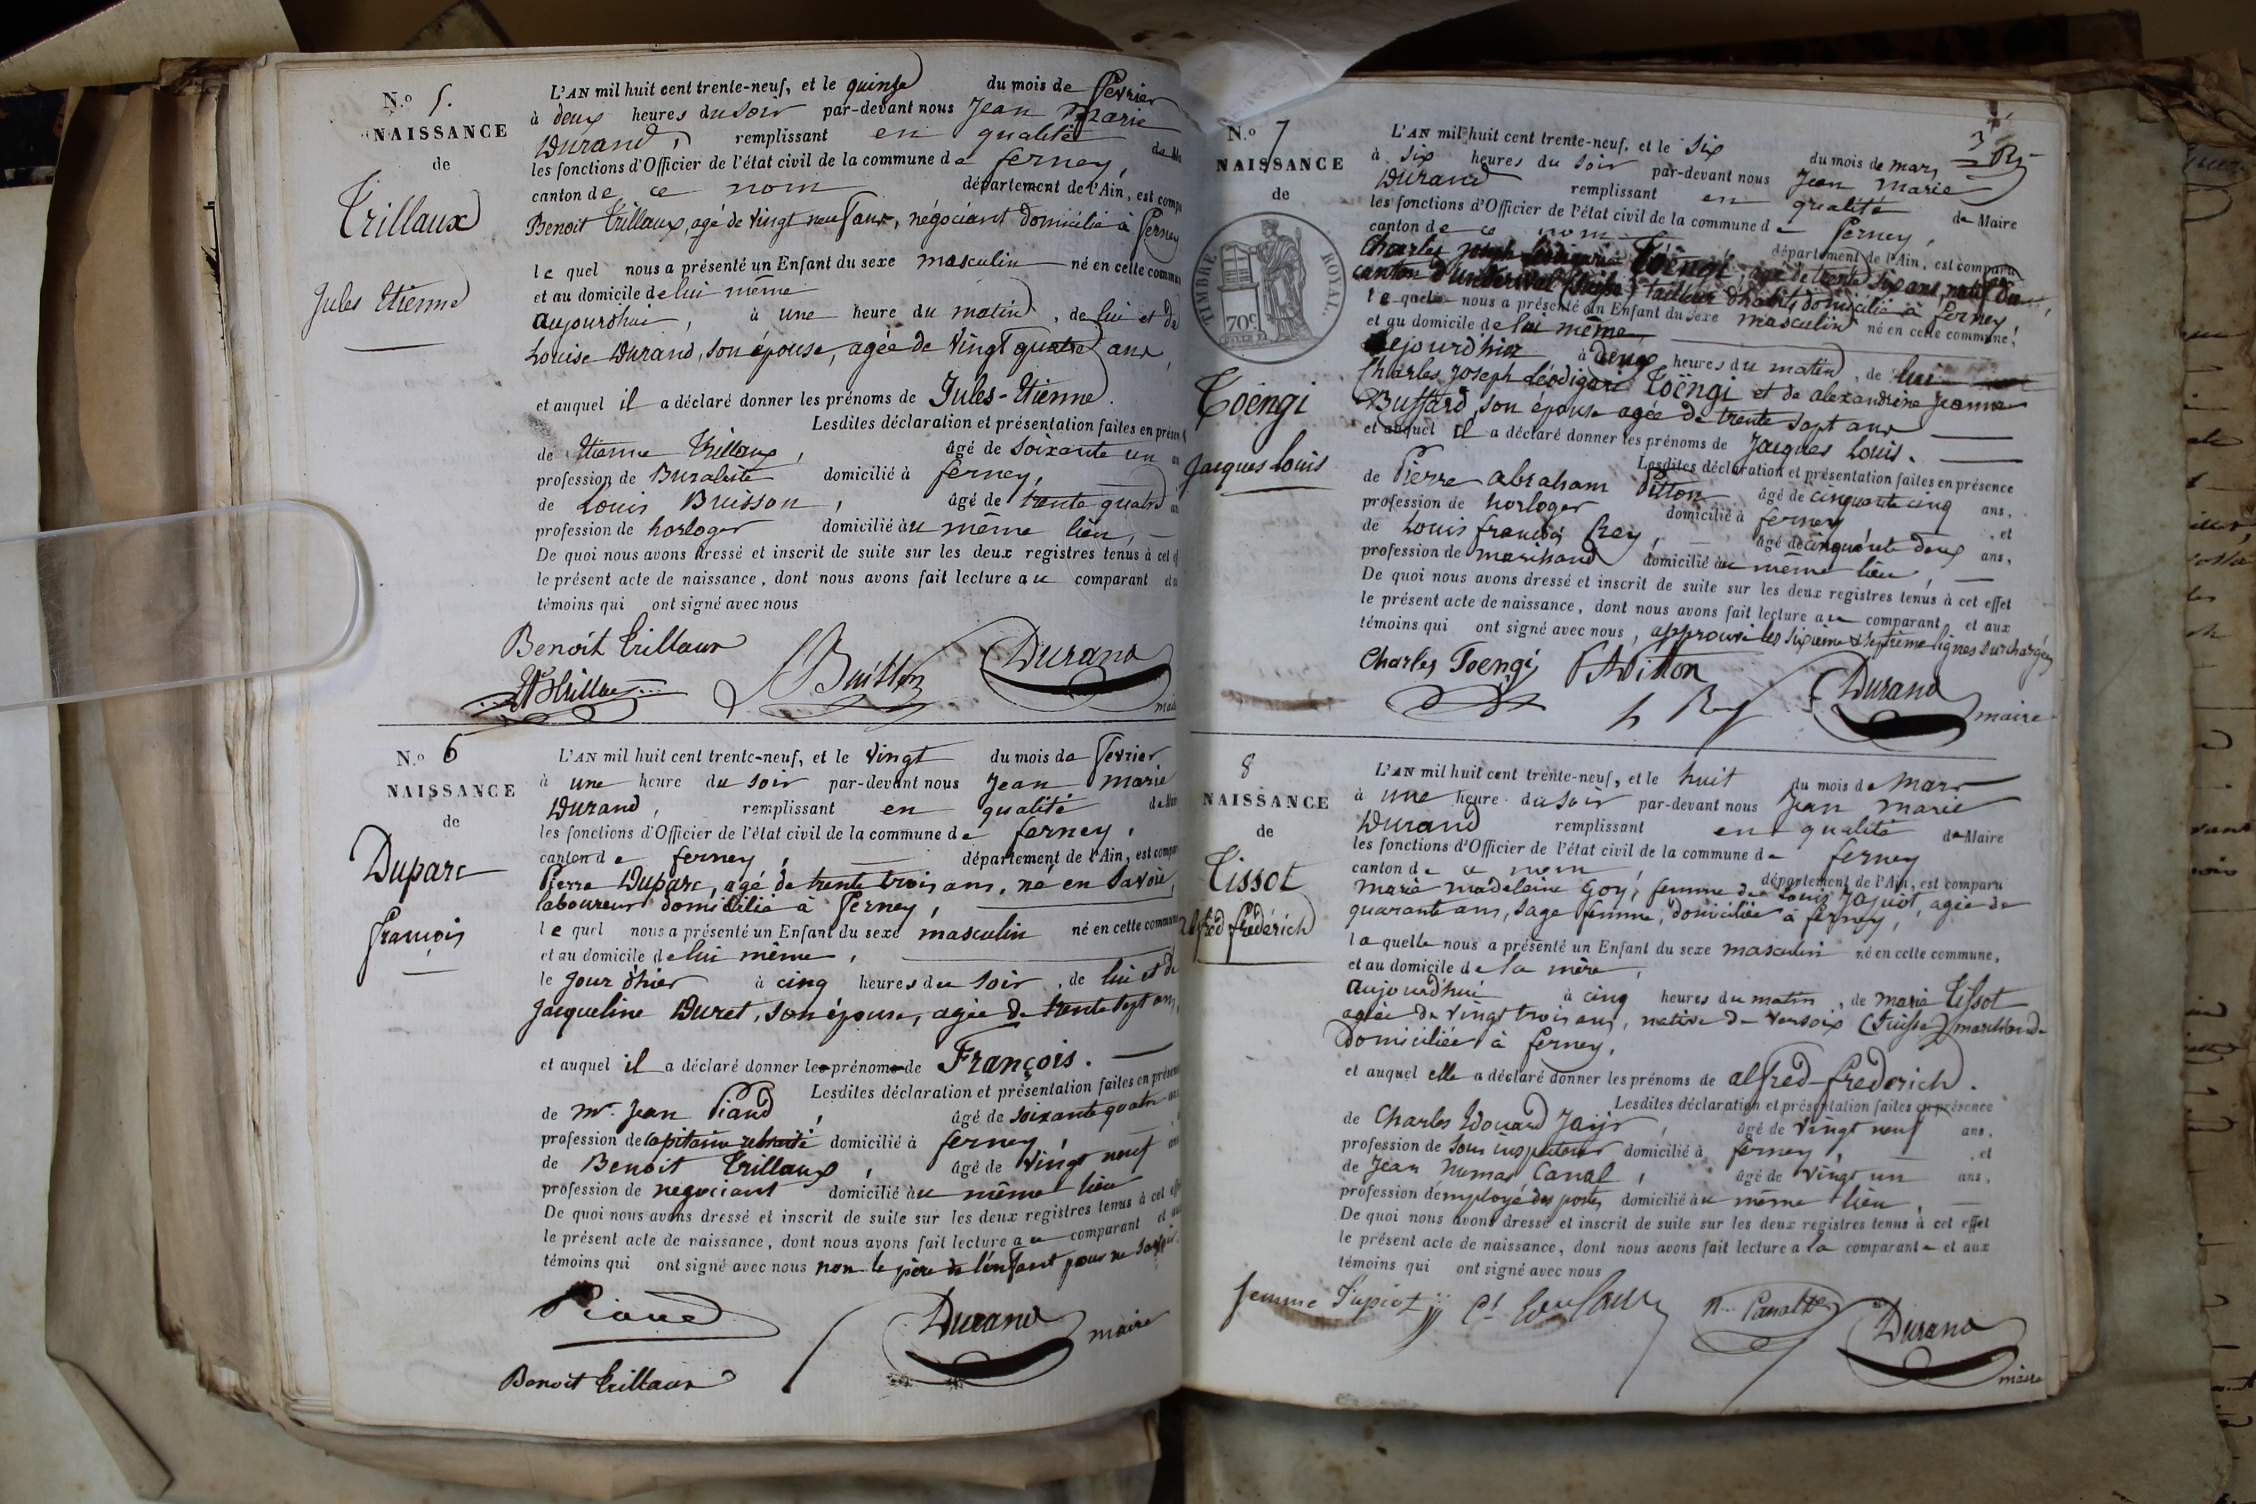 N.o 5.
NAISSANCE
de
Trillaux
Jules Etienne
L'AN mil huit cent trente-neuf, et le quinze du mois de fevrier
à deux heures du soir par-devant nous Jean Marie
Durand, remplissant en qualité de
les fonctions d'Officier de l'état civil de la commune de ferney,
canton de ce nom département de l'Ain, est comp
Benoit Trillaux, agé de vingt neuf ans, négociant domicilié à ferney
le quel nous a présenté un Enfant du sexe masculin né en cette commun
et au domicile de lui même
aujourdhui, à une heure du matin, de lui et de
Louise Durand, son épouse, agée de vingt quatre ans,
et auquel il a déclaré donner les prénoms de Jules-Etienne.
Lesdites déclaration et présentation faites en prése
de Etienne Trillaux, âgé de soixante un
profession de Buraliste domicilié à ferney,
de Louis Buisson, âgé de trente quatre
profession de horloger domicilié au même lieu,
De quoi nous avons dressé et inscrit de suite sur les deux registres tenus à cet
le présent acte de naissance, dont nous avons fait lecture au comparant et
témoins qui ont signé avec nous
Benoit Trillaux
Trillaux LBuisson Durand
maire
N.o 6
NAISSANCE
de
Duparc
François
L'AN mil huit cent trente-neuf, et le vingt du mois de fevrier
à une heure du soir par-devant nous Jean Marie
Durand, remplissant en qualité de
les fonctions d'Officier de l'état civil de la commune de ferney,
canton de ferney, département de l'Ain, est comp
Pierre Duparc, agé de trente trois ans, né en Savoie,
laboureur domicilié à ferney,
le quel nous a présenté un Enfant du sexe masculin né en cette commune
et au domicile de lui même,
le jour d'hier à cinq heures du soir, de lui et de
Jacqueline Duret, son épouse, agée de trente sept ans,
et auquel il a déclaré donner le prénom de François.
Lesdites déclaration et présentation faites en présen
de Mr. Jean Piaud, âgé de soixante quatre
profession de capitaine retraité domicilié à ferney,
de Benoit Trillaux, âgé de vingt neuf
profession de negociant domicilié au même lieu
De quoi nous avons dressé et inscrit de suite sur les deux registres tenus à cet
le présent acte de naissance, dont nous avons fait lecture au comparant et
témoins qui ont signé avec nous non le père de l'enfant pour ne savoir
Piaud Durand maire
Benoit Trillaux
N.o 7
NAISSANCE
de
TIMBRE ROYAL.
70c
Toëngi
Jacques Louis
L'AN mil huit cent trente-neuf, et le six du mois de mars
à six heures du soir par-devant nous Jean Marie
Durand remplissant en qualité de Maire
les fonctions d'Officier de l'état civil de la commune de ferney,
canton de ce nom département de l'Ain, est comparu
Charles Joseph Léodigarie Toëngi agé de trente six ans, natif du
canton d'underwal (Suisse) tailleur d'habits domicilié à ferney,
le quel nous a présenté un Enfant du sexe masculin né en cette commune,
et au domicile de lui même,
aujourdhui à deux heures du matin, de lui
Charles Joseph Léodigarie Toëngi et de alexandrine Jeanne
Buffard, son épouse agée de trente sept ans
et auquel il a déclaré donner les prénoms de Jacques Louis.
Lesdites déclaration et présentation faites en présence
de Pierre abraham Pitton âgé de cinquante cinq ans,
profession de horloger domicilié à ferney, et
de Louis françois Rey, âgé de cinquante deux ans,
profession de marchand domicilié au même lieu,
De quoi nous avons dressé et inscrit de suite sur les deux registres tenus à cet effet
le présent acte de naissance, dont nous avons fait lecture au comparant et aux
témoins qui ont signé avec nous, approuvé les sixieme & septieme lignes surchargées
Charles Toengi PAPitton
L Rey Durand maire
8
NAISSANCE
de
Tissot
alfred fréderich
L'AN mil huit cent trente-neuf, et le huit du mois de mars
à une heure du soir par-devant nous Jean Marie
Durand remplissant en qualité de Maire
les fonctions d'Officier de l'état civil de la commune de ferney
canton de ce nom, département de l'Ain, est comparu
Marie Madelaine Goy, femme de Louis Jaquot, agée de
quarante ans, sage femme, domiciliée à ferney,
la quelle nous a présenté un Enfant du sexe masculin né en cette commune,
et au domicile de la mère,
aujourdhui à cinq heures du matin, de marie Tissot
agée de vingt trois ans, native de versoix (Suisse) marchande
domiciliée à ferney,
et auquel elle a déclaré donner les prénoms de alfred-frederich.
Lesdites déclaration et présentation faites en présence
de Charles Edouard âgé de vingt neuf ans,
profession de sous inspecteur domicilié à ferney, et
de Jean Numas Canal, âgé de vingt un ans,
profession d'employé des postes domicilié au même lieu,
De quoi nous avons dressé et inscrit de suite sur les deux registres tenus à cet effet
le présent acte de naissance, dont nous avons fait lecture a la comparante et aux
témoins qui ont signé avec nous
femme Durand
maire